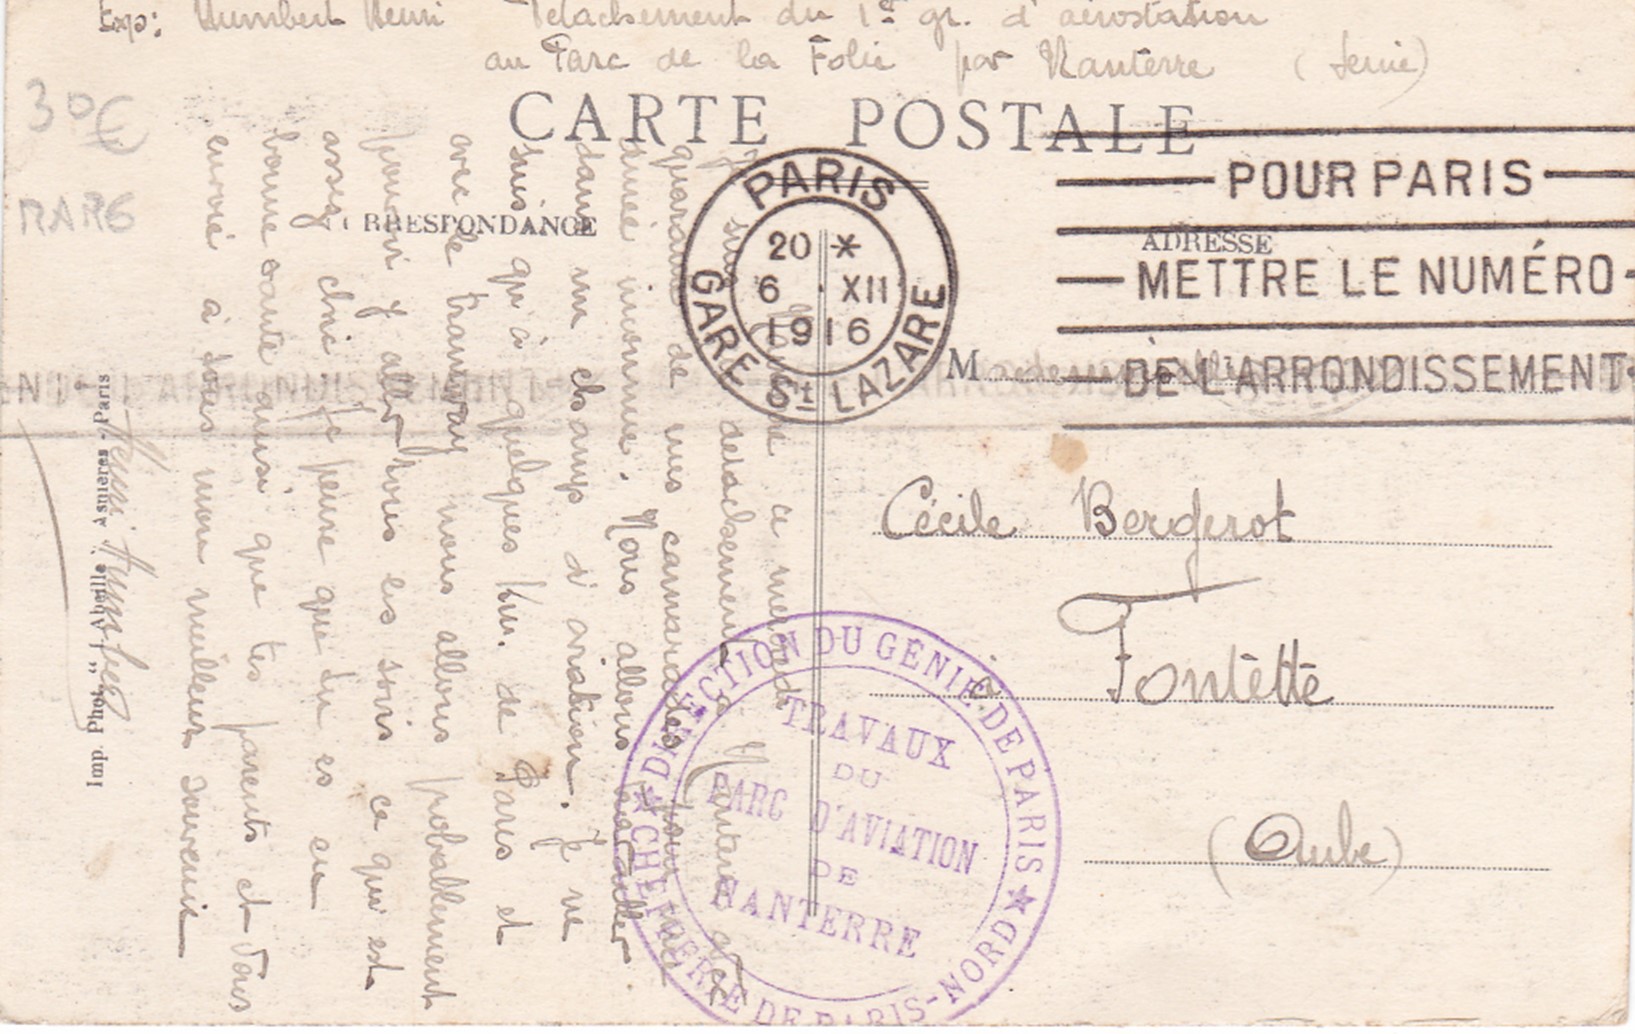 Exp: Humbert Henri Détachement du 1er gr. d'aérostation
au Parc de la Folie par Nanterre (Seine)
30€
RARE
CARTE POSTALE
RRESPONDANCE
ADRESSE
PARIS
GARE St LAZARE
20 *
6 XII
1916
POUR PARIS
METTRE LE NUMÉRO
DE L'ARRONDISSEMENT
M ademoiselle
Cécile Bergerot
à Fontette
(Aube)
DIRECTION DU GÉNIE DE PARIS
CHEFFERIE DE PARIS-NORD
TRAVAUX
DU
PARC D'AVIATION
DE
NANTERRE
ce
Je suis détachement à Nanterre avec
quarante de mes camarades pour une
durée inconnue. Nous allons travailler
dans un champ d'aviation. Je ne
suis qu'à quelques km. de Paris et
avec le tramway nous allons probablement
pouvoir y aller tous les soirs ce qui est
assez chic. Je pense que tu es en
bonne santé ainsi que tes parents et vous
envoie à tous mon meilleur souvenir
Henri Humbert
Imp. Phot. "L'Abeille" Asnières - Paris